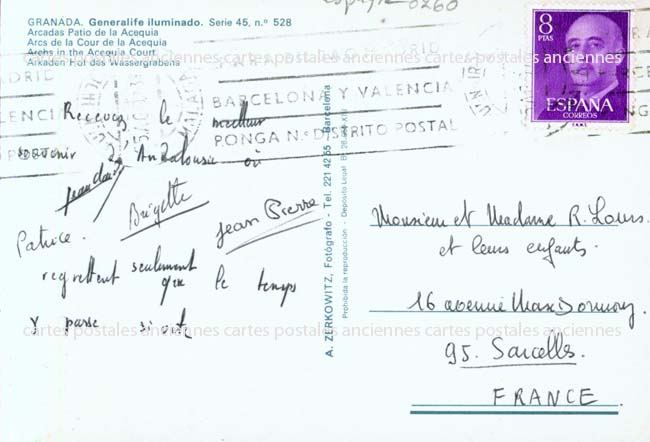 GRANADA. Generalife iluminado. Serie 45, n.º 528
Arcadas Patio de la Acequia
Arcs de la Cour de la Acequia
Archs in the Acequia Court
Arkaden Hof des Wassergrabens
0260
8
PTAS
ESPAÑA
CORREOS
BARCELONA Y VALENCIA
PONGA N.º DISTRITO POSTAL
Recevez le meilleur
souvenir d'Andalousie où
Jean Claude
Brigitte
Jean Pierre
Patrice
regrettent seulement
que le temps
y passe si vite
A. ZERKOWITZ, Fotógrafo - Tel. 221 42 55 Barcelona
Prohibida la reproducción - Depósito Legal B.
Monsieur et Madame R. Lours
et leurs enfants.
16 avenue Max Dormoy
95. Sarcelles.
FRANCE
cartes postales anciennes cartes postales anciennes cartes postales anciennes
cartes postales anciennes cartes postales anciennes cartes postales anciennes